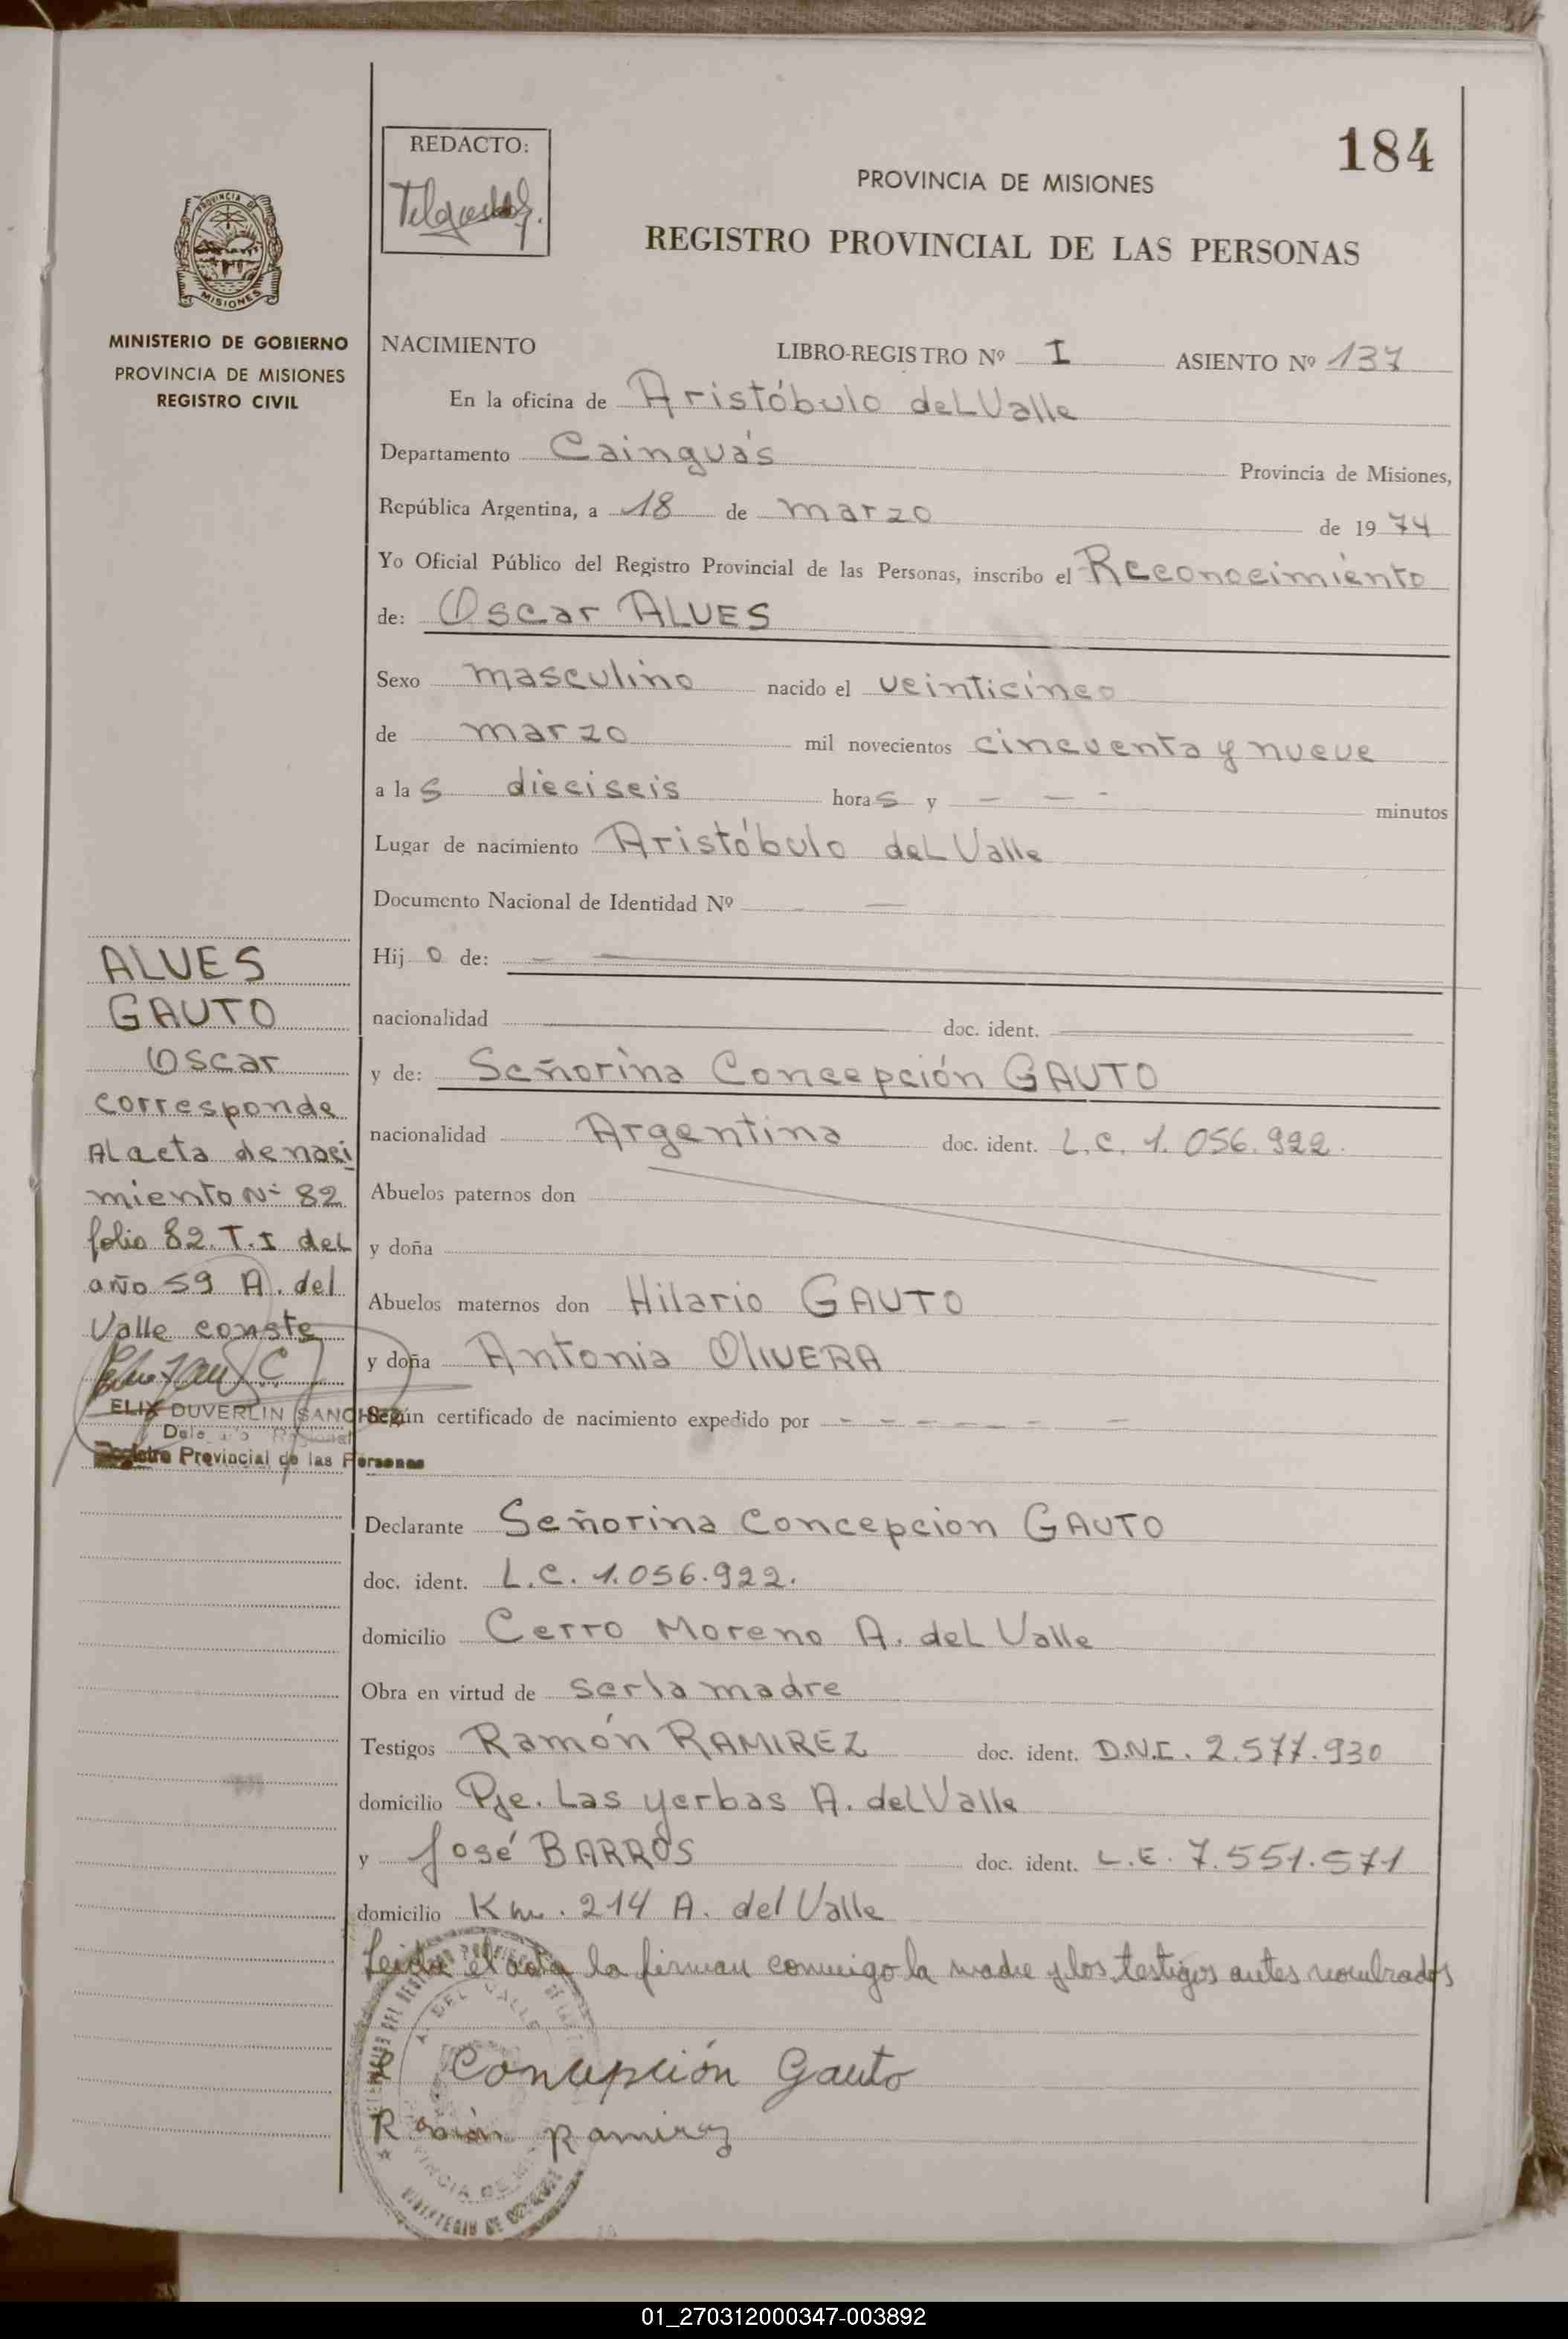 184
REDACTO:
PROVINCIA DE MISIONES
REGISTRO PROVINCIAL DE LAS PERSONAS
PROVINCIA DE
MISIONES
MINISTERIO DE GOBIERNO
PROVINCIA DE MISIONES
REGISTRO CIVIL
NACIMIENTO LIBRO-REGISTRO Nº I ASIENTO Nº 137
En la oficina de Aristóbulo deL Valle
Departamento Cainguás Provincia de Misiones,
República Argentina, a 18 de marzo de 19 74
Yo Oficial Público del Registro Provincial de las Personas, inscribo el Reconocimiento
de: Oscar ALVES
Sexo masculino nacido el veinticinco
de marzo mil novecientos cincuenta y nueve
a la s dieciseis hora s y - - - minutos
Lugar de nacimiento Aristóbulo deL Valle
Documento Nacional de Identidad Nº - —
Hij o de: - —
nacionalidad — doc. ident. —
y de: Señorina Concepción GAUTO
nacionalidad Argentina doc. ident. L.C. 1.056.922.
Abuelos paternos don
y doña
Abuelos maternos don Hilario GAUTO
y doña Antonia OlIVERA
Según certificado de nacimiento expedido por - - - - - - -
Declarante Señorina Concepcion GAUTO
doc. ident. L.C. 1.056.922.
domicilio Cerro Moreno A. deL Valle
Obra en virtud de ser la madre
Testigos Ramón RAMIREZ doc. ident. D.N.I. 2.577.930
domicilio Pje. Las yerbas A. deL Valle
y José BARROS doc. ident. L.E. 7.551.571
domicilio Km. 214 A. del Valle
Leida el acta la firman conmigo la madre y los testigos antes nombrados
Concepción Gauto
Ramón Ramirez
A. DEL VALLE
PROVINCIA DE
MINISTERIO DE GOBIERNO
ALVES
GAUTO
Oscar
corresponde
AL acta de naci
miento Nº 82
folio 82. T. I deL
año 59 A. del
Valle conste
ELIX DUVERLIN SANCHEZ
Registro Provincial de las Personas
01_270312000347-003892